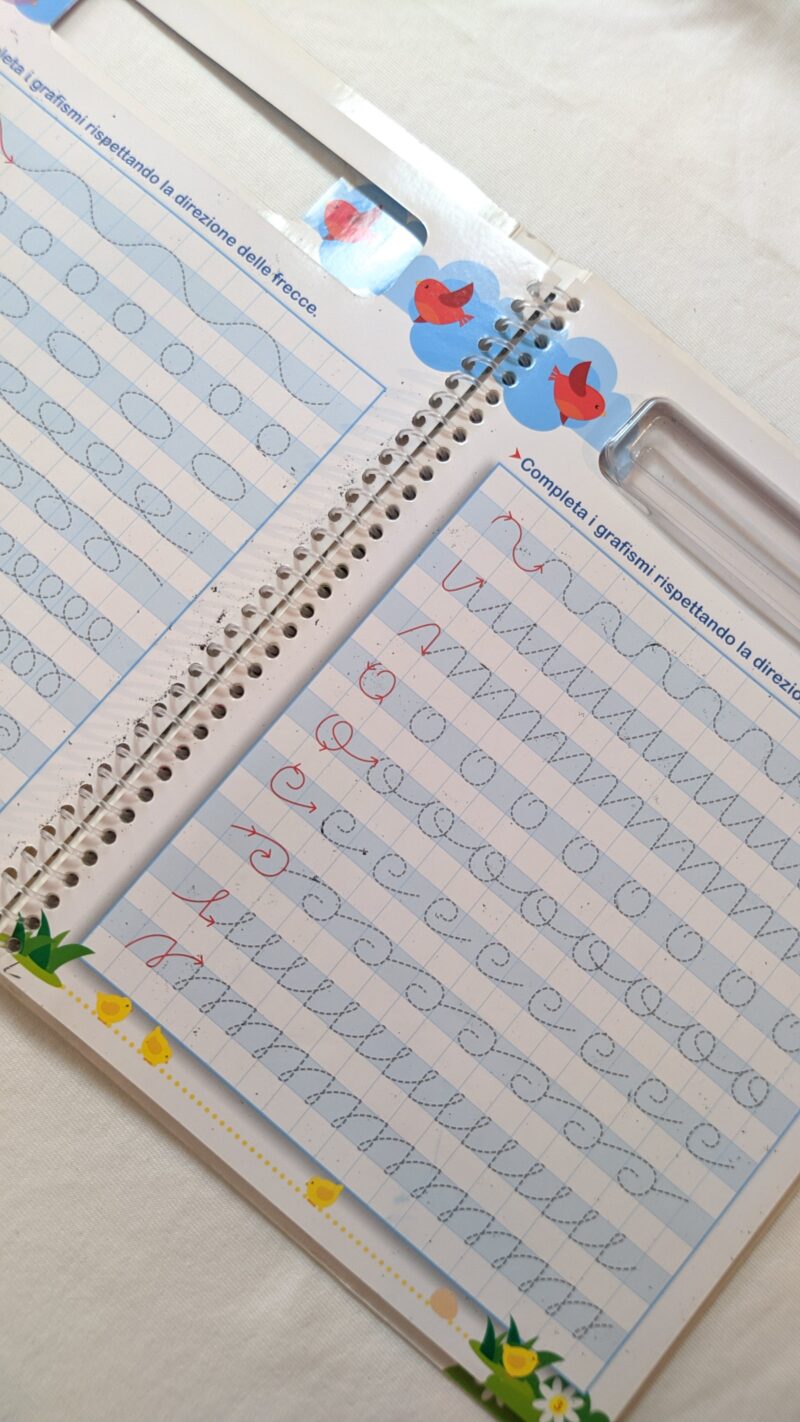 i grafismi rispettando la direzione delle frecce.
Completa i grafismi rispettando la